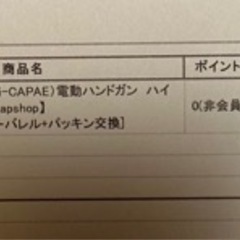 商品名 ポイント
i-CAPAE)電動ハンドガン ハイ
apshop】 0(非会員
バレル+パッキン交換]